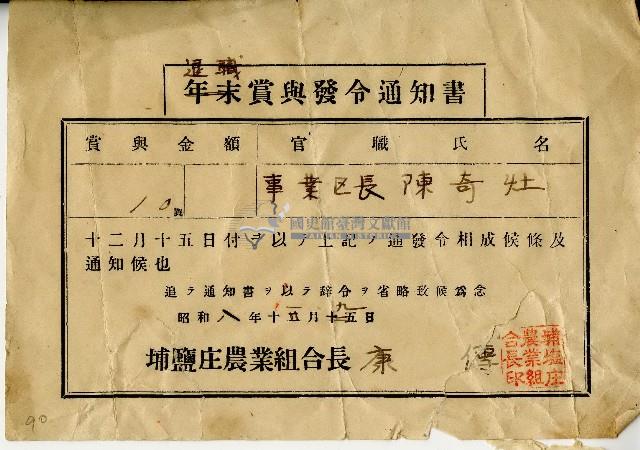 退職
年末賞與發令通知書
賞與金額 官職氏名
10圓 事業区長 陳奇灶
國史館臺灣文獻館
TAIWAN HISTORICA
十二月十五日付ヲ以テ上記ノ通發令相成候條及
通知候也
追テ通知書ヲ以テ辞令ヲ省略致候爲念
昭和八年十月十九日
埔鹽庄農業組合長 康 傳
埔塩庄
農業組
合長印
90